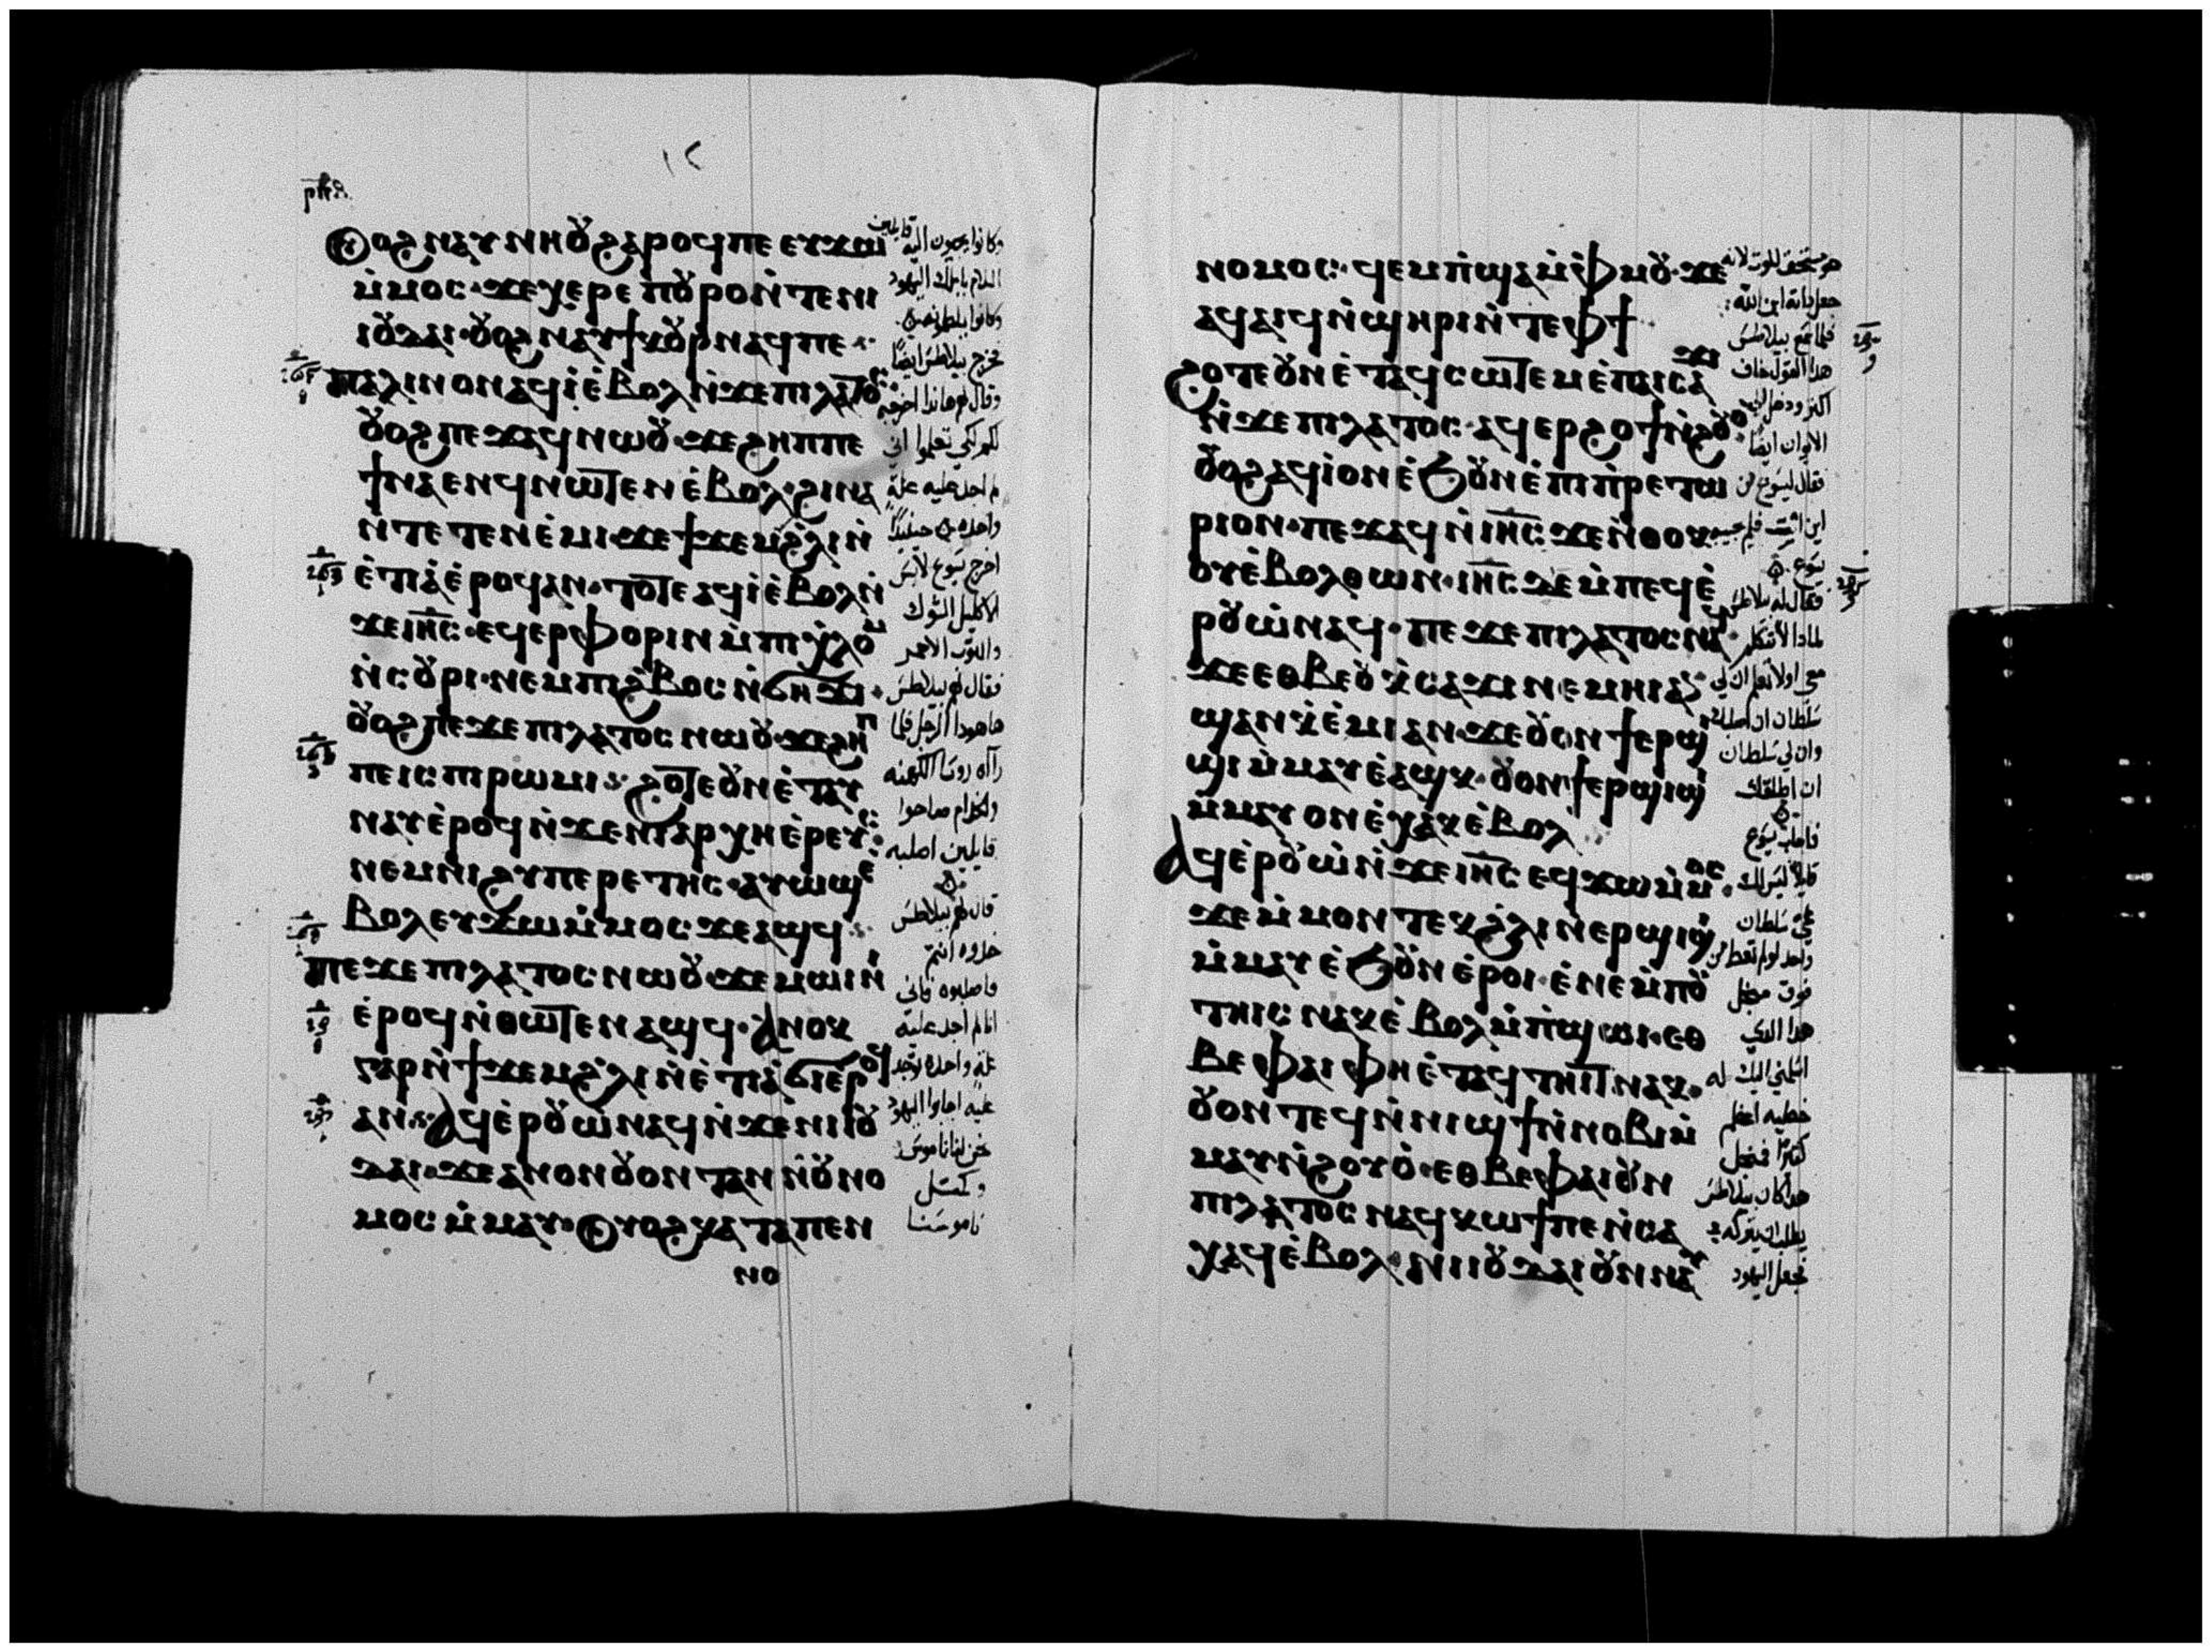 ⲟⲩⲟϩ ⲛⲁⲩⲛⲏⲟⲩ ϩⲁⲣⲟϥ ⲡⲉ ⲉⲩϫⲱ
ⲙ̀ⲙⲟⲥ· ϫⲉ ⲭⲉⲣⲉ ⲡⲟⲩⲣⲟ ⲛ̀ⲧⲉ ⲛⲓ
ⲓⲟⲩⲇⲁⲓ· ⲟⲩⲟϩ ⲛⲁⲩϯⲕⲟⲩⲣ ⲛⲁϥ ⲡⲉ
ⲡⲁⲗⲓⲛ ⲟⲛ ⲁϥⲓ̀ ⲉ̀ⲃⲟⲗ ⲛ̀ϫⲉ ⲡⲓⲗⲁⲧⲟⲥ
ⲟⲩⲟϩ ⲡⲉϫⲁϥ ⲛⲱⲟⲩ· ϫⲉ ϩⲏⲡⲡⲉ
ϯⲛⲁⲉⲛϥ ⲛⲱⲧⲉⲛ ⲉ̀ⲃⲟⲗ· ϩⲓⲛⲁ
ⲛ̀ⲧⲉⲧⲉⲛⲉ̀ⲙⲓ· ϫⲉ ϯϫⲉⲙ ϩ̀ⲗⲓ ⲛ̀
ⲉ̀ⲧⲓⲁ̀ ⲉ̀ⲣⲟϥ ⲁⲛ· ⲧⲟⲧⲉ ⲁϥⲓ̀ ⲉ̀ⲃⲟⲗ ⲛ̀
ϫⲉ ⲓⲏⲥ· ⲉϥⲉⲣⲫⲟⲣⲓⲛ ⲙ̀ⲡⲓⲭ̀ⲗⲟⲙ
ⲛ̀ⲥⲟⲩⲣⲓ· ⲛⲉⲙ ⲡⲓϩ̀ⲃⲟⲥ ⲛ̀ϭⲏϫⲓ·
ⲟⲩⲟϩ ⲡⲉϫⲉ ⲡⲓⲗⲁⲧⲟⲥ ⲛⲱⲟⲩ· ϫⲉ ϩⲏⲡ
ⲡⲉ ⲓⲥ ⲡⲓⲣⲱⲙⲓ· ϩⲟⲧⲉ ⲟⲩⲛ ⲉ̀ⲧⲁⲩ
ⲛⲁⲩ ⲉ̀ⲣⲟϥ ⲛ̀ϫⲉ ⲛⲓⲁⲣⲭⲏⲉ̀ⲣⲉⲩⲥ
ⲛⲉⲙ ⲛⲓϩⲩⲡⲉⲣⲉⲧⲏⲥ· ⲁⲩⲱϣ ⲉ̀
ⲃⲟⲗ ⲉⲩϫⲱ ⲙ̀ⲙⲟⲥ ϫⲉ ⲁϣϥ
ⲡⲉϫⲉ ⲡⲓⲗⲁⲧⲟⲥ ⲛⲱⲟⲩ· ϫⲉ ⲙⲱⲓⲛⲓ
ⲉ̀ⲣⲟϥ ⲛ̀ⲑⲱⲧⲉⲛ ⲁϣϥ· ⲁⲛⲟⲕ
ⲅⲁⲣ ⲛ̀ϯϫⲉⲙ ϩ̀ⲗⲓ ⲛ̀ⲉ̀ⲧⲓⲁ̀ ϭⲓ ⲉⲣⲟϥ
ⲁⲛ· ⲁϥⲉ̀ⲣⲟⲩⲱ̀ ⲛⲁϥ ⲛ̀ϫⲉ ⲛⲓⲓⲟⲩ
ⲇⲁⲓ· ϫⲉ ⲁⲛⲟⲛ ⲟⲩⲟⲛⲧⲁⲛ ⲛ̀ⲟⲩⲛⲟ
ⲙⲟⲥ ⲙ̀ⲙⲁⲩ· ⲟⲩⲟϩ ⲕⲁⲧⲁ ⲡⲉⲛ
ⲛⲟ
وكانوا يجيون اليه قايلين
السلام يا ملك اليهود
وكانوا يلطمونه
فخرج بيلاطس ايضًا
وقال لهم هاندا اخرجه
لكم لكي تعلموا اني
لم اجد عليه علة
واحده حينيذًا
اخرج يسوع لابس
الاكليل الشوك
والثوب الاحمر
فقال لهم بيلاطس
ها هودا الرجل فلما
راآه روسا الكهنه
والخدام صاحوا
قايلين اصلبه
قال لهم بيلاطس
خذوه انتم
واصلبوه فاني
انا لم اجد عليه
علة واحده
عليه اجابوا اليهود
نحن لنا ناموس
وكمثل
ناموسنا
ⲛⲟⲙⲟⲥ· ϥⲉⲙⲡ̀ϣⲁ ⲙ̀ⲫ̀ⲙⲟⲩ· ϫⲉ
ⲁϥⲁⲓϥ ⲛ̀ϣⲏⲣⲓ ⲛ̀ⲧⲉ ⲫϯ
ϩⲟⲧⲉ ⲟⲩⲛ ⲉ̀ⲧⲁϥⲥⲱⲧⲉⲙ ⲉ̀ⲡⲁⲓⲥⲁϫⲓ
ⲛ̀ϫⲉ ⲡⲓⲗⲁⲧⲟⲥ· ⲁϥⲉⲣϩⲟϯ ⲛ̀ϩⲟⲩⲟ
ⲟⲩⲟϩ ⲁϥⲓ̀ ⲟⲛ ⲉ̀ϧⲟⲩⲛ ⲉ̀ⲡⲓⲡ̀ⲣⲉⲧⲱ
ⲣⲓⲟⲛ· ⲡⲉϫⲁϥ ⲛ̀ⲓⲏⲥ ϫⲉ ⲛ̀ⲑⲟⲕ
ⲟⲩⲉ̀ⲃⲟⲗ ⲑⲱⲛ· ⲓⲏⲥ ⲇⲉ ⲙ̀ⲡⲉϥⲉ̀
ⲣⲟⲩⲱ̀ ⲛⲁϥ· ⲡⲉϫⲉ ⲡⲓⲗⲁⲧⲟⲥ ⲛⲁϥ
ϫⲉ ⲉⲑⲃⲉⲟⲩ ⲕ̀ⲥⲁϫⲓ ⲛⲉⲙⲏⲓ ⲁⲛ
ϣⲁⲛ ⲕ̀ⲉ̀ⲙⲓ ⲁⲛ ϫⲉ ⲟⲩⲟⲛϯ ⲉⲣϣⲓ
ϣⲓ ⲙ̀ⲙⲁⲩ ⲉ̀ⲁϣⲕ· ⲟⲩⲟⲛϯ ⲉⲣϣⲓϣⲓ
ⲙ̀ⲙⲁⲩ ⲟⲛ ⲉ̀ⲭⲁⲕ ⲉ̀ⲃⲟⲗ
ⲁϥⲉ̀ⲣⲟⲩⲱ̀ ⲛ̀ϫⲉ ⲓⲏⲥ ⲉϥϫⲱ ⲙ̀ⲙⲟⲥ·
ϫⲉ ⲙ̀ⲙⲟⲛⲧⲉⲕ ϩ̀ⲗⲓ ⲛ̀ⲉⲣϣⲓϣⲓ
ⲙ̀ⲙⲁⲩ ⲉ̀ϧⲟⲩⲛ ⲉ̀ⲣⲟⲓ· ⲉ̀ⲛⲉ ⲙ̀ⲡⲟⲩ
ⲧⲏⲓⲥ ⲛⲁⲕ ⲉ̀ⲃⲟⲗ ⲙ̀ⲡ̀ϣⲱⲓ· ⲉⲑ
ⲃⲉ ⲫⲁⲓ ⲫⲏ ⲉ̀ⲧⲁϥⲧⲏⲓⲧ ⲛⲁⲕ·
ⲟⲩⲟⲛⲧⲉϥ ⲛ̀ⲛⲓϣϯ ⲛ̀ⲛⲟⲃⲓ ⲙ̀
ⲙⲁⲩ ⲛ̀ϩⲟⲩⲟ̀· ⲉⲑⲃⲉ ⲫⲁⲓ ⲟⲩⲛ
ⲡⲓⲗⲁⲧⲟⲥ ⲛⲁϥⲕⲱϯ ⲡⲉ ⲛ̀ⲥⲁ
ⲭⲁϥ ⲉ̀ⲃⲟⲗ· ⲛⲓⲓⲟⲩⲇⲁⲓ ⲟⲩⲛ ⲛⲁⲩ
هو مستحق للموت لانه
جعل ذاته ابن الله
فلما سمع بيلاطس
هدا القول خاف
اكثر ودخل الي
الايوان ايضًا
فقال ليسوع من
اين انت فلم يجيبه
يسوع
فقال له بيلاطس
لمادا لا تتكلم
معي اولا تعلم ان لي
سلطان ان اصلبك
وان لي سلطان
ان اطلقك
فاجاب يسوع
قايلًا ليس لك
علي سلطان
واحد لو لم تعط من
فوق من اجل
هدا الدي
اسلمني اليك له
خطيه اعظم
كثيرًا فمن اجل
هدا كان بيلاطس
يطلب ان يتركه
فجعل اليهود